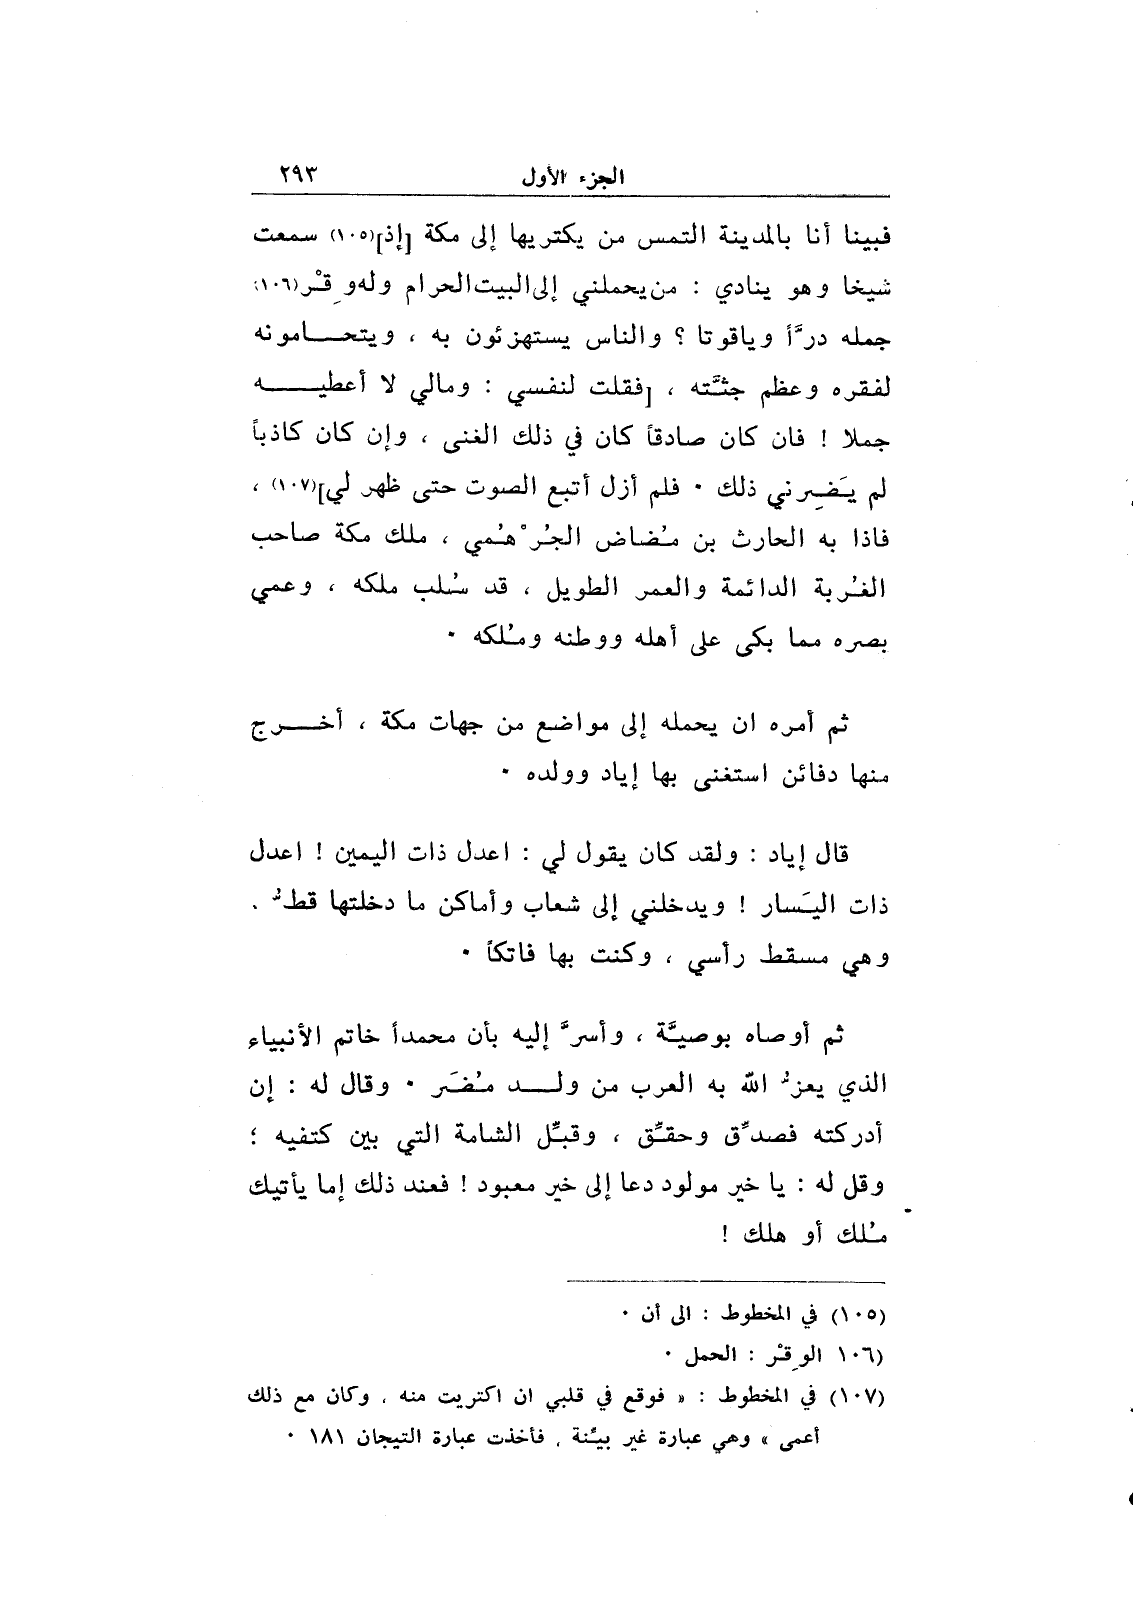 الجزء الأول ٢٩٣
فبينا أنا بالمدينة التمس من يكتريها إلى مكة [إذ](١٠٥) سمعت
شيخا وهو ينادي : من يحملني إلى البيت الحرام وله وِقْر(١٠٦)
جمله درَّاً وياقوتا ؟ والناس يستهزئون به ، ويتحامونه
لفقره وعظم جثَّته ، [فقلت لنفسي : ومالي لا أعطيه
جملا ! فان كان صادقاً كان في ذلك الغنى ، وإن كان كاذباً
لم يَضِرني ذلك . فلم أزل أتبع الصوت حتى ظهر لي](١٠٧) ،
فاذا به الحارث بن مُضاض الجُرْهُمي ، ملك مكة صاحب
الغُربة الدائمة والعمر الطويل ، قد سُلب ملكه ، وعمي
بصره مما بكى على أهله ووطنه ومُلكه .
ثم أمره ان يحمله إلى مواضع من جهات مكة ، أخرج
منها دفائن استغنى بها إياد وولده .
قال إياد : ولقد كان يقول لي : اعدل ذات اليمين ! اعدل
ذات اليَسار ! ويدخلني إلى شعاب وأماكن ما دخلتها قطُّ .
وهي مسقط رأسي ، وكنت بها فاتكاً .
ثم أوصاه بوصيَّة ، وأسرَّ إليه بأن محمداً خاتم الأنبياء
الذي يعزُّ الله به العرب من ولد مُضَر . وقال له : إن
أدركته فصدِّق وحقِّق ، وقبِّل الشامة التي بين كتفيه ؛
وقل له : يا خير مولود دعا إلى خير معبود ! فعند ذلك إما يأتيك
مُلك أو هلك !
(١٠٥) في المخطوط : الى أن .
(١٠٦ الوِقْر : الحمل .
(١٠٧) في المخطوط : « فوقع في قلبي ان اكتريت منه ، وكان مع ذلك
أعمى » وهي عبارة غير بيِّنة ، فأخذت عبارة التيجان ١٨١ .